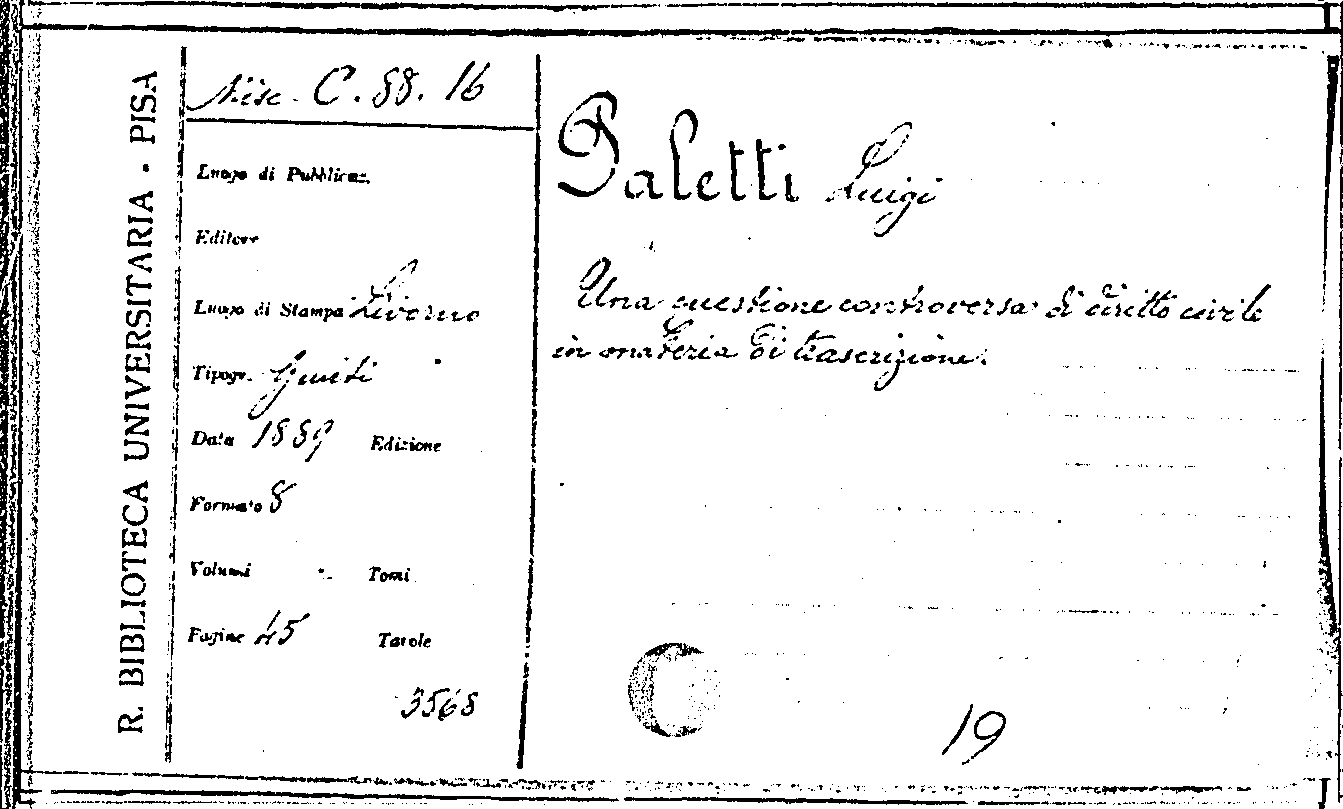 R. BIBLIOTECA UNIVERSITARIA - PISA
Misc. C. 88. 16
Luogo di Pubblicaz.
Editore
Luogo di Stampa Livorno
Tipogr. Giusti
Data 1889 Edizione
Formato 8
Volumi Tomi
Pagine 45 Tavole
3568
Paletti Luigi
Una questione controversa di diritto civile
in materia di trascrizione.
19